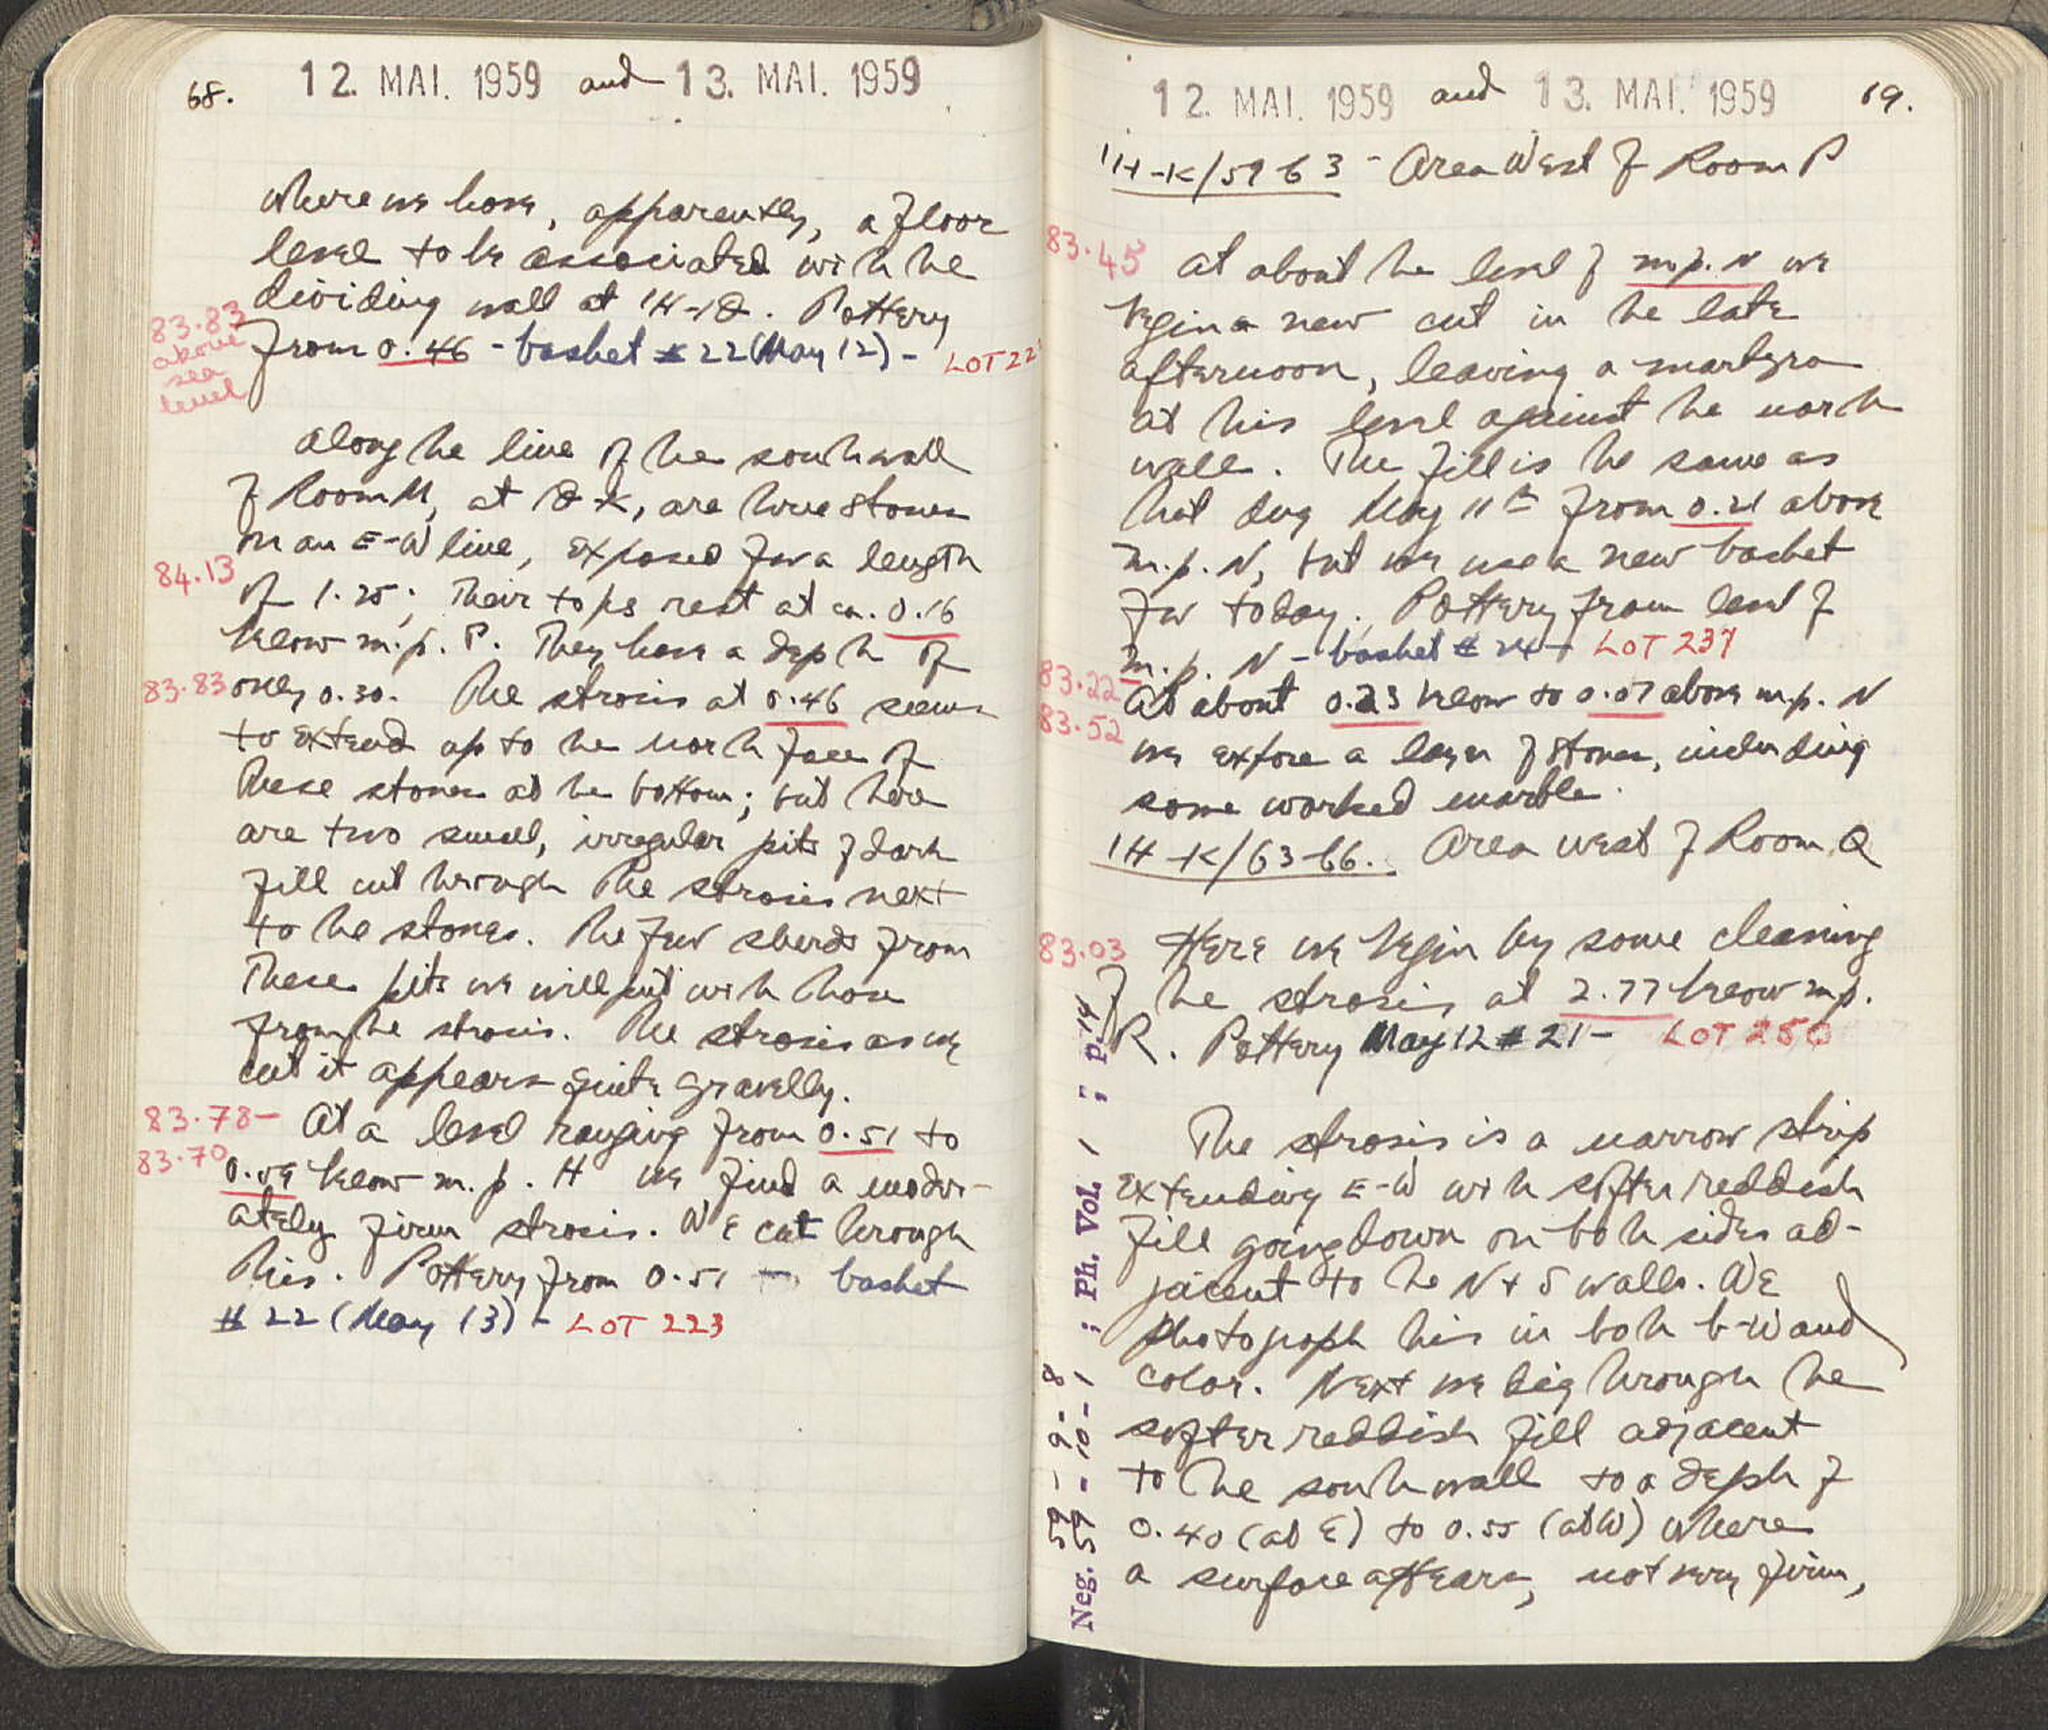 68.
12. MAI. 1959 and 13. MAI. 1959
where we have, apparently, a floor
level to be associated with the
dividing wall at IH-IΘ. Pottery
83.83
above
sea
level
from 0.46 - basket # 22 (May 12) - LOT 22
along the line of the south wall
of Room M, at Θ-K, are three stones
in an E-W line, exposed for a length
84.13
of 1.25; Their tops rest at ca. 0.16
below m.p. P. They have a depth of
83.83
only 0.30. The strosis at 0.46 seems
to extend up to the north face of
these stones at the bottom; but there
are two small, irregular pits of dark
fill cut through the strosis next
to the stones. The few sherds from
these pits we will put with those
from the strosis. The strosis as we
cut it appears quite gravelly.
83.78-
83.70
At a level ranging from 0.51 to
below m.p. H we find a moder-
ately firm strosis. We cut through
this. Pottery from 0.51 - basket
# 22 (May 13) - LOT 223
12. MAI. 1959 and 13. MAI. 1959
69.
IH-K/59 63 - Area West of Room P
83.45
at about the level of m.p. N we
begin a new cut in the late
afternoon, leaving a martyra
at this level against the north
wall. The fill is the same as
that dug May 11th from 0.21 above
m.p. N, but we use a new basket
for today. Pottery from level of
m.p. N - basket # 24 - LOT 237
83.22
83.52
At about 0.23 below to 0.07 above m.p. N
we expose a layer of stones, including
some worked marble.
IH-K/63-66. Area west of Room Q
83.03
Here we begin by some cleaning
of the strosis at 2.77 below m.p.
R. Pottery May 12 # 21 - LOT 250
The strosis is a narrow strip
extending E-W with softer reddish
fill going down on both sides ad-
jacent to the N + S walls. We
photograph this in both b-W and
color. Next we dig through the
softer reddish fill adjacent
to the south wall to a depth of
0.40 (at E) to 0.55 (at W) where
a surface appears, not very firm,
Neg. 59-9-8
59-10-1 ; Ph. Vol. I ; p. 14